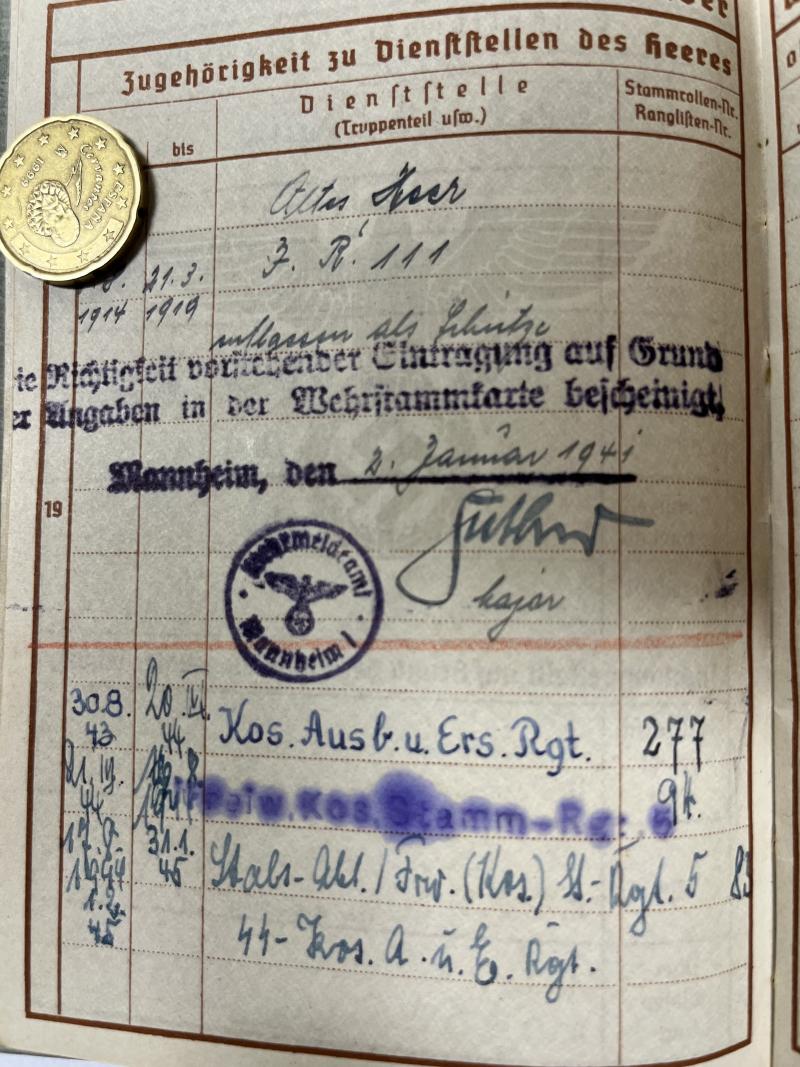 Zugehörigkeit zu Dienststellen des Heeres
bis
Dienststelle
(Truppenteil usw.)
Stammrollen-Nr.
Ranglisten-Nr.
ESPAÑA
Cervantes
M
1999
Altes Heer
21.3.
J. R. 111
1914 1919
entlassen als Schütze
ie Richtigkeit vorstehender Eintragung auf Grund
er Angaben in der Wehrstammkarte bescheinigt,
Mannheim, den 2. Januar 1941
19
Major
Wehrmeldeamt
Mannheim 1
30.8. 43 20.IV. 44 Kos. Ausb. u. Ers. Rgt. 277
44 Freiw. Kos. Stamm-Rgt. 5 94.
31.1. 45 Stabs-Abt. / Frw. (Kos.) St.-Rgt. 5 83
1.2. 45 44-Kos. A. u. E. Rgt.